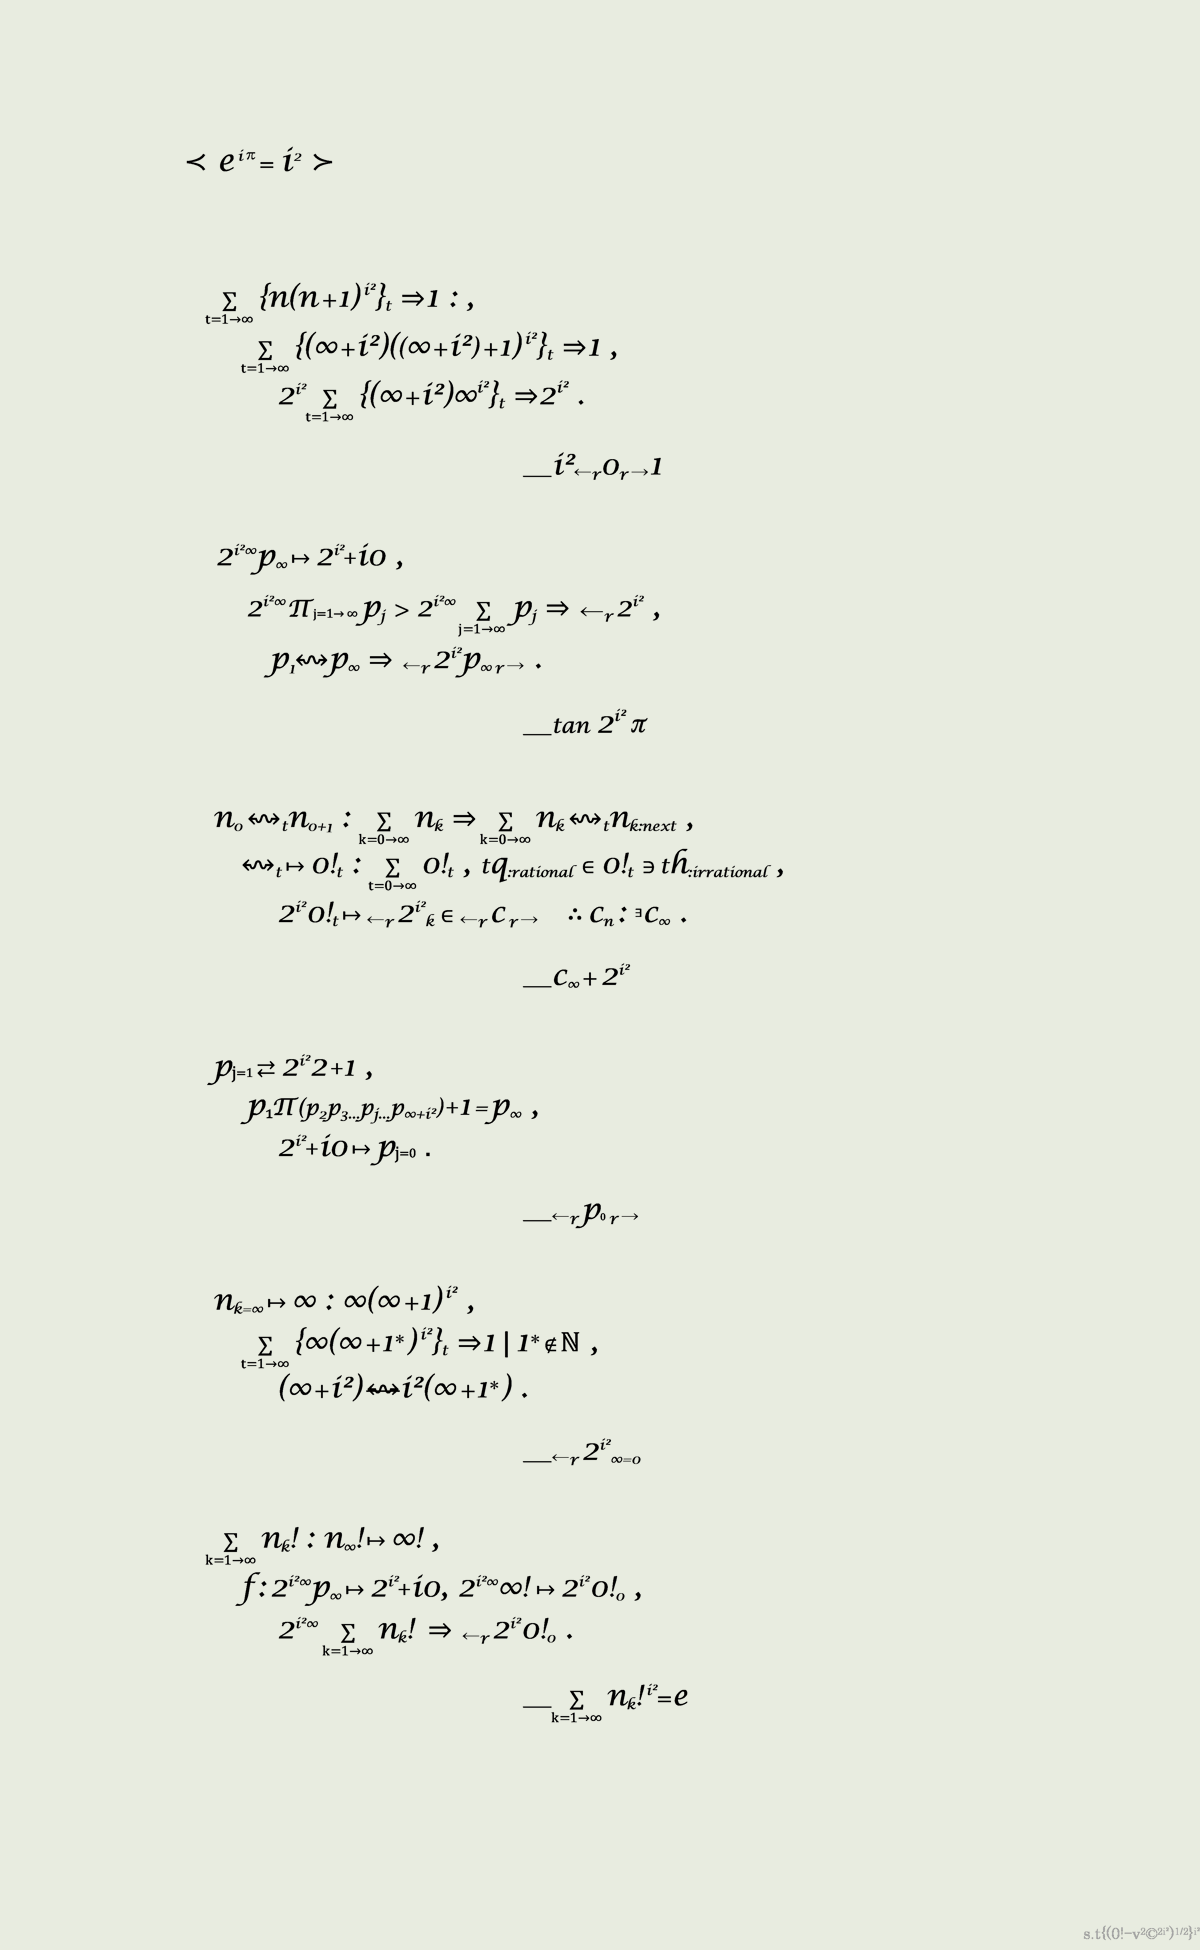 ≺ e^{iπ} = i² ≻
Σ_{t=1→∞} {n(n+1)^{i²}}_t ⇒1 : ,
Σ_{t=1→∞} {(∞+i²)((∞+i²)+1)^{i²}}_t ⇒1 ,
2^{i²} Σ_{t=1→∞} {(∞+i²)∞^{i²}}_t ⇒2^{i²} .
__i²_{←r}0_{r→}1
2^{i²∞}p_∞ ↦ 2^{i²}+i0 ,
2^{i²∞}π_{j=1→∞}p_j > 2^{i²∞} Σ_{j=1→∞} p_j ⇒ ←_r 2^{i²} ,
p_1↭p_∞ ⇒ _{←r}2^{i²}p_{∞ r→} .
__tan 2^{i²}π
n_0 ↭_t n_{0+1} : Σ_{k=0→∞} n_k ⇒ Σ_{k=0→∞} n_k ↭_t n_{k:next} ,
↭_t ↦ 0!_t : Σ_{t=0→∞} 0!_t , tq_{:rational} ∈ 0!_t ∋ tℏ_{:irrational} ,
2^{i²}0!_t ↦ _{←r}2^{i²}_k ∈ _{←r}c_{r→} ∴ c_n : ^∃c_∞ .
__c_∞+2^{i²}
p_{j=1} ⇄ 2^{i²}2+1 ,
p_1π(p_2p_3...p_j...p_{∞+i²})+1=p_∞ ,
2^{i²}+i0 ↦ p_{j=0} .
__{←r}p_{0 r→}
n_{k=∞} ↦ ∞ : ∞(∞+1)^{i²} ,
Σ_{t=1→∞} {∞(∞+1*)^{i²}}_t ⇒1 | 1*∉ℕ ,
(∞+i²)↭i²(∞+1*) .
__{←r}2^{i²}_{∞=0}
Σ_{k=1→∞} n_k! : n_∞! ↦ ∞! ,
f : 2^{i²∞}p_∞ ↦ 2^{i²}+i0, 2^{i²∞}∞! ↦ 2^{i²}0!_0 ,
2^{i²∞} Σ_{k=1→∞} n_k! ⇒ _{←r}2^{i²}0!_0 .
__Σ_{k=1→∞} n_k!^{i²}=e